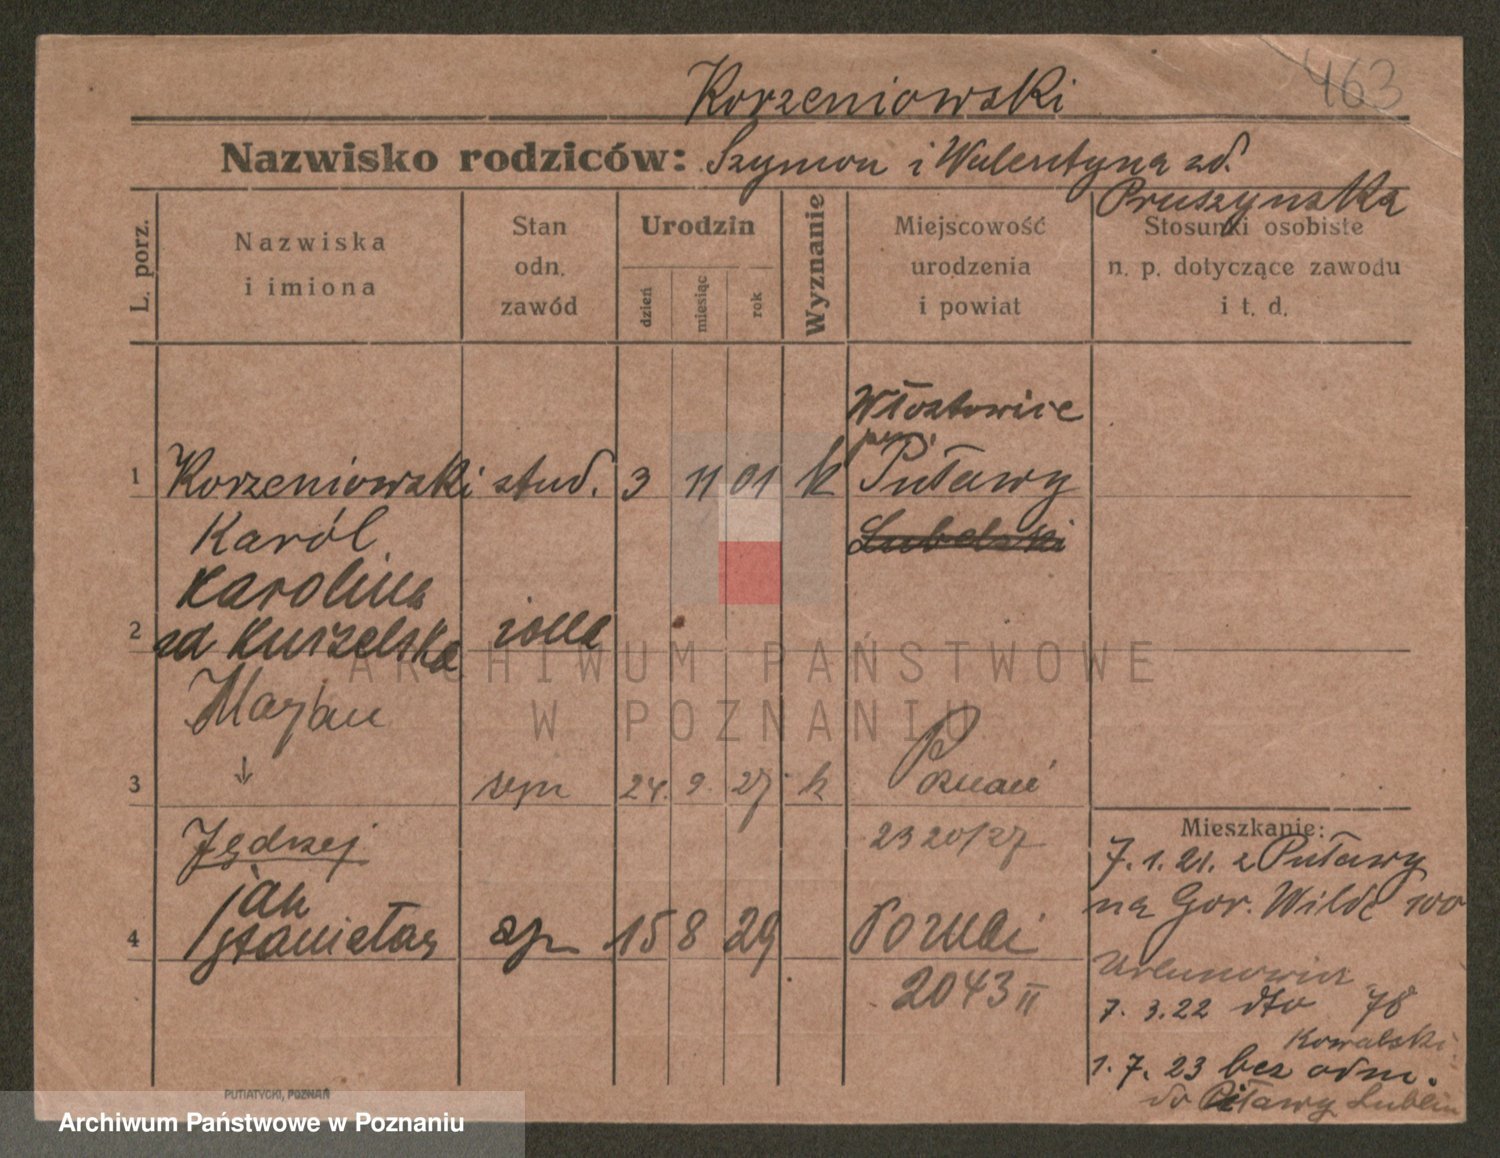 463
Korzeniowski
Nazwisko rodziców: Szymon i Walentyna zd.
Pruszynska
L. porz.
Nazwiska
i imiona
Stan
odn.
zawód
Urodzin
dzień
miesiąc
rok
Wyznanie
Miejscowość
urodzenia
i powiat
Stosunki osobiste
n. p. dotyczące zawodu
i t. d.
Włostowice
pow.
1 Korzeniowski stud. 3 11 01 k Puławy
Karól
Lubelski
Karolina
2 zd żona
Marjan
3 syn 24. 9. 27. k Poznań
Jędrzej
2320/27
Jan
4 Stanisław syn 15 8 29 Poznań
2043 II
Mieszkanie:
7.1.21. z Puławy
na Gór. Wilde 100
7. 3.22 dto 78
Kowalski
1. 7. 23 bez odm.
do Puławy Lublin
PUTIATYCKI, POZNAŃ
ARCHIWUM PAŃSTWOWE
W POZNANIU
Archiwum Państwowe w Poznaniu